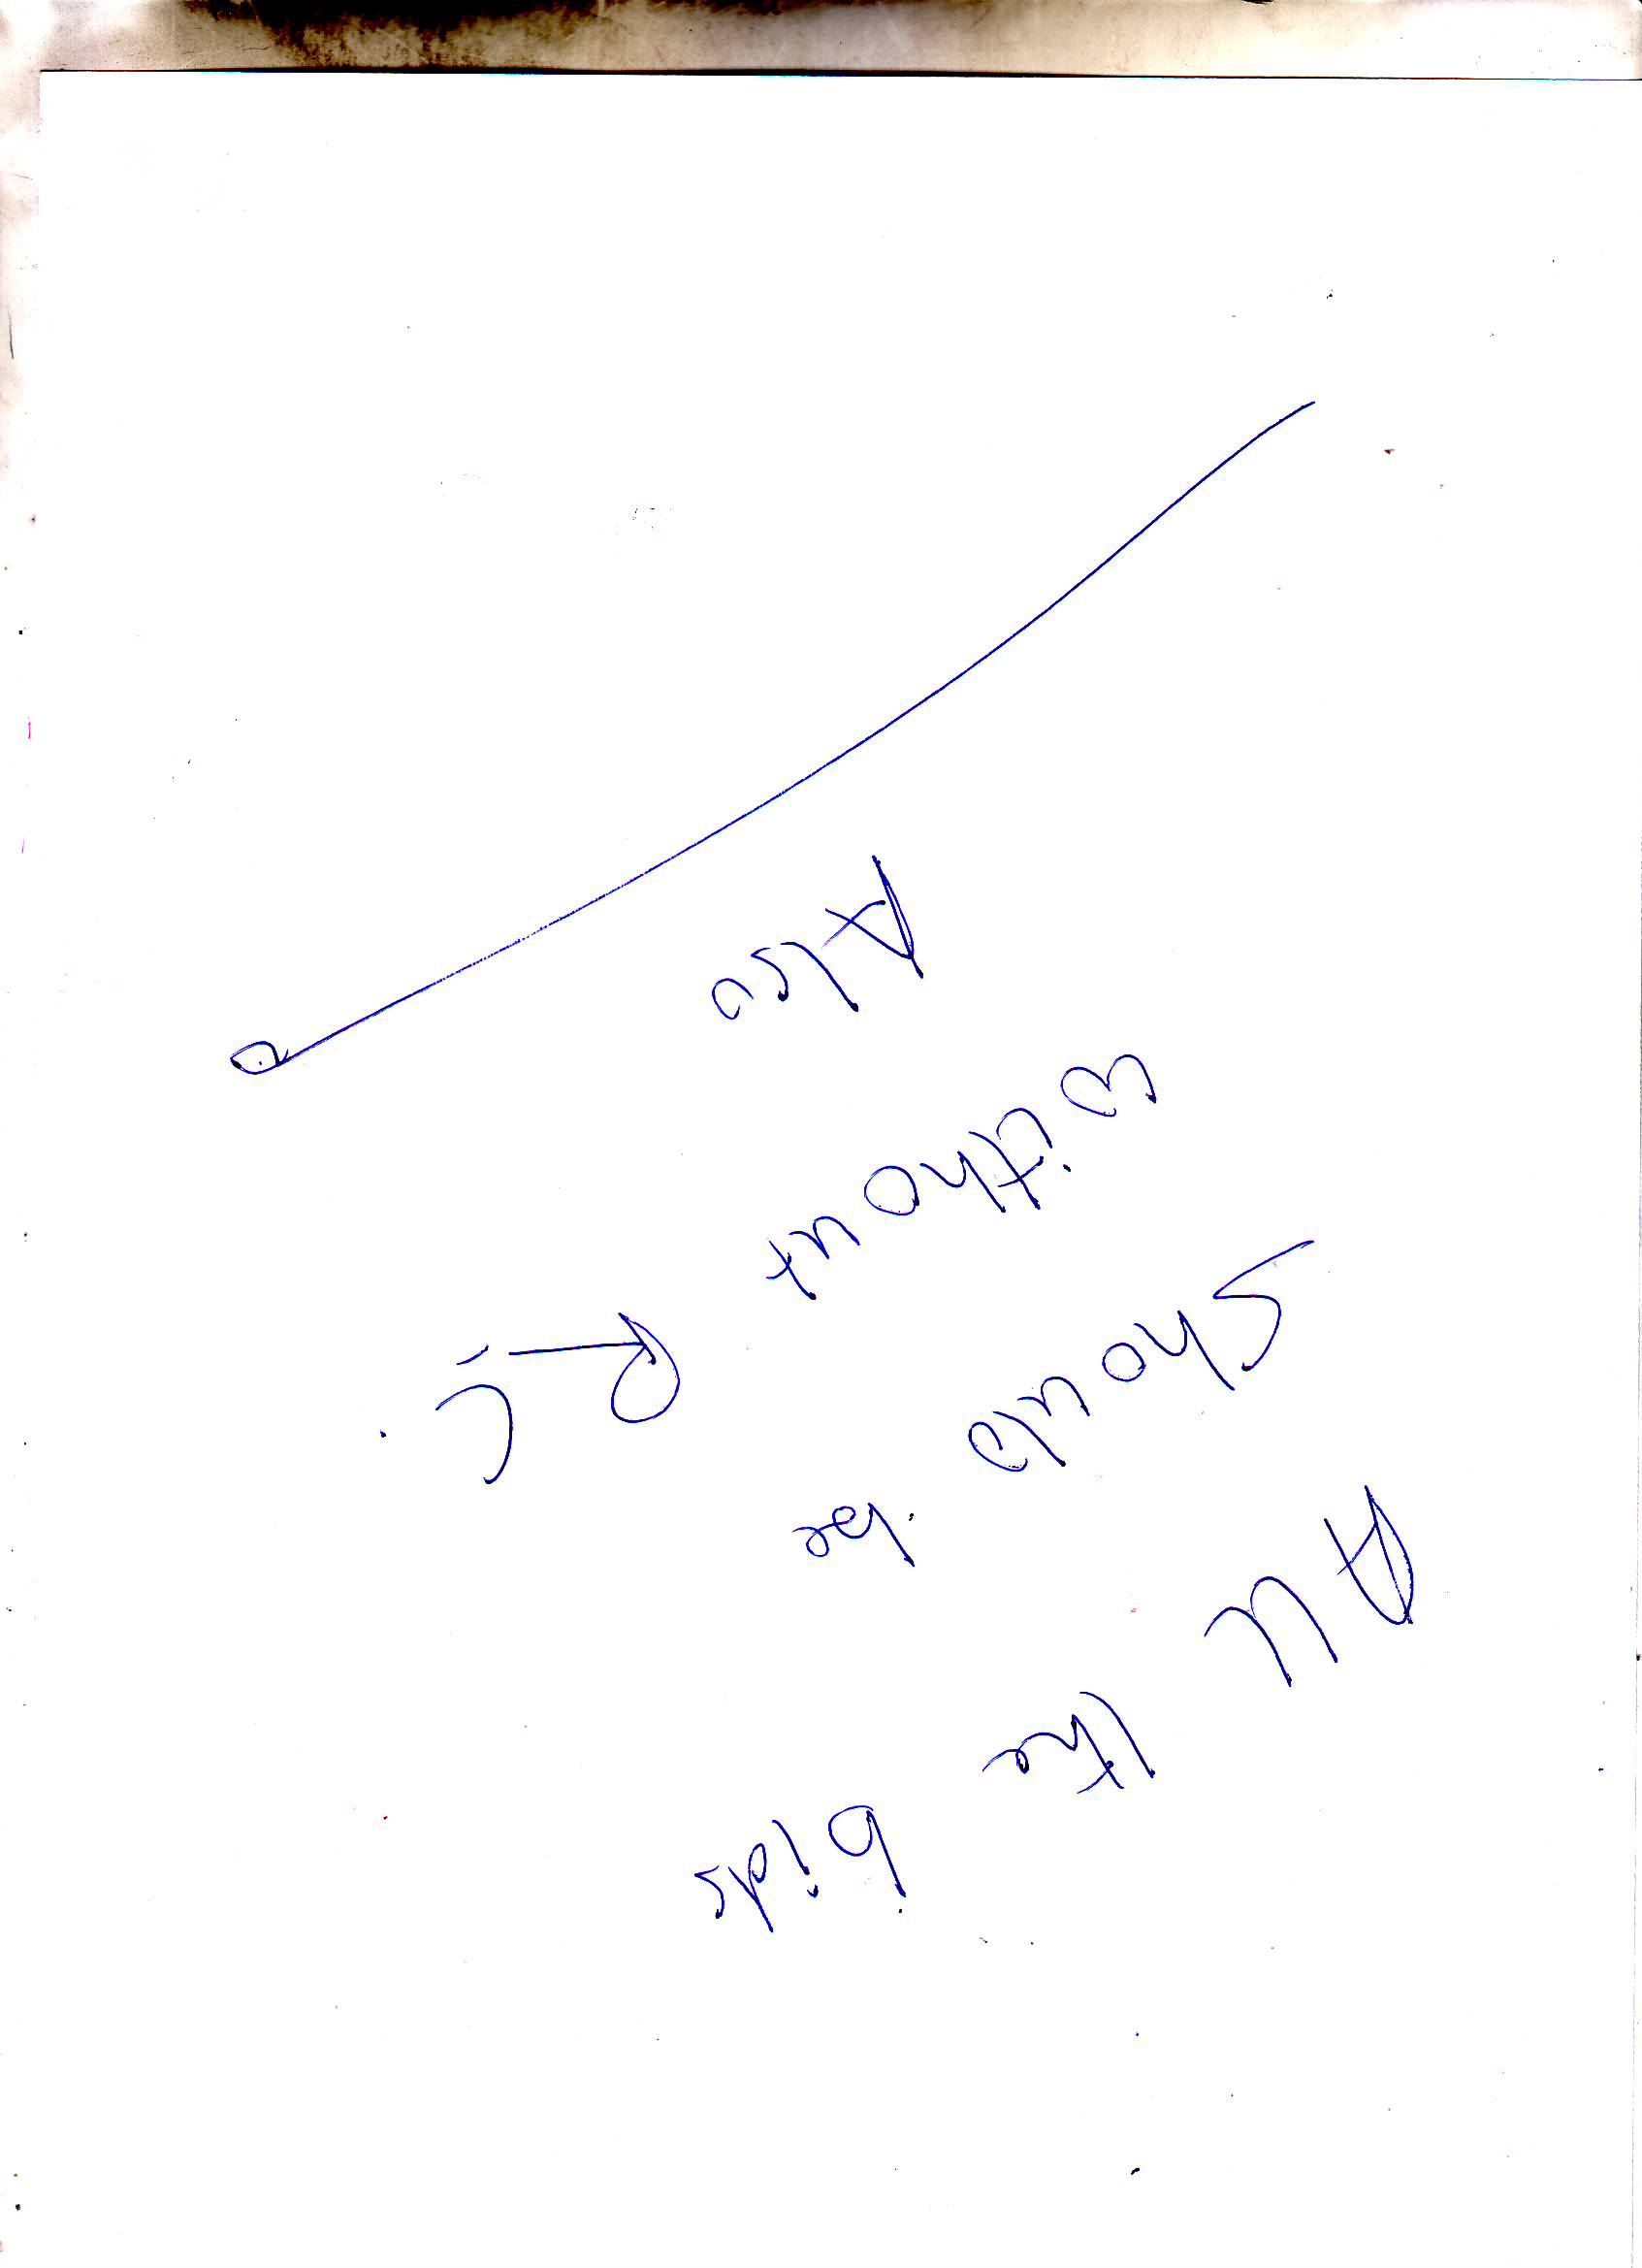 All the bids
Should be
without R-C.
Also